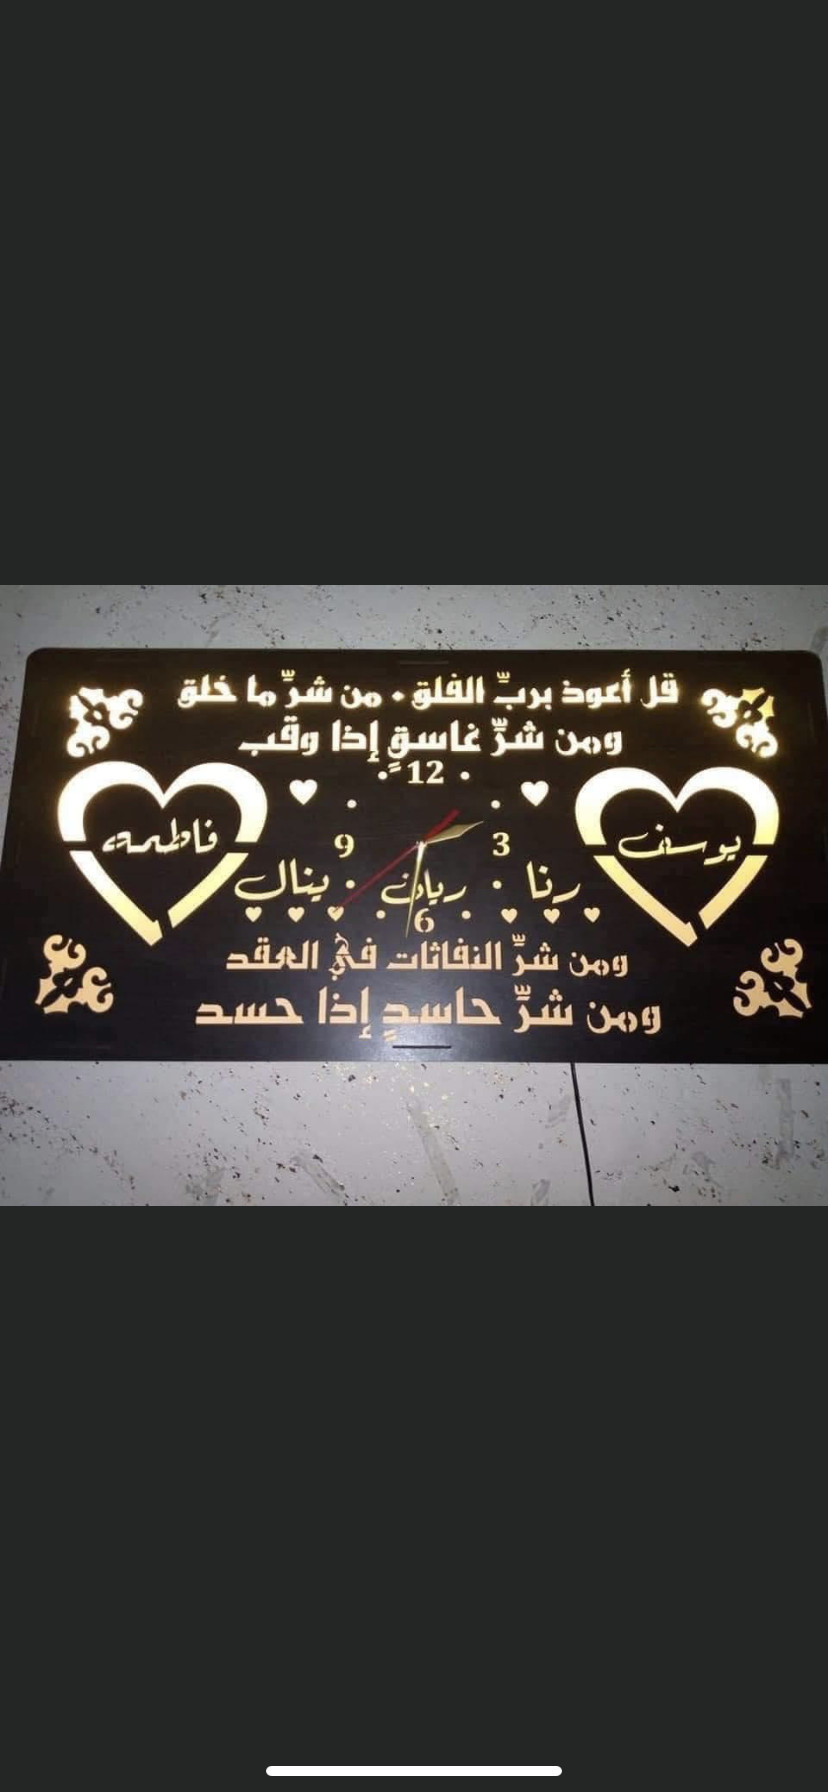 قل أعوذ بربِّ الفلق • من شرِّ ما خلق
ومن شرِّ غاسقٍ إذا وقب
12
9
3
يوسف
فاطمه
رنا • ريان • ينال
6
ومن شرِّ النفاثات في العقد
ومن شرِّ حاسدٍ إذا حسد